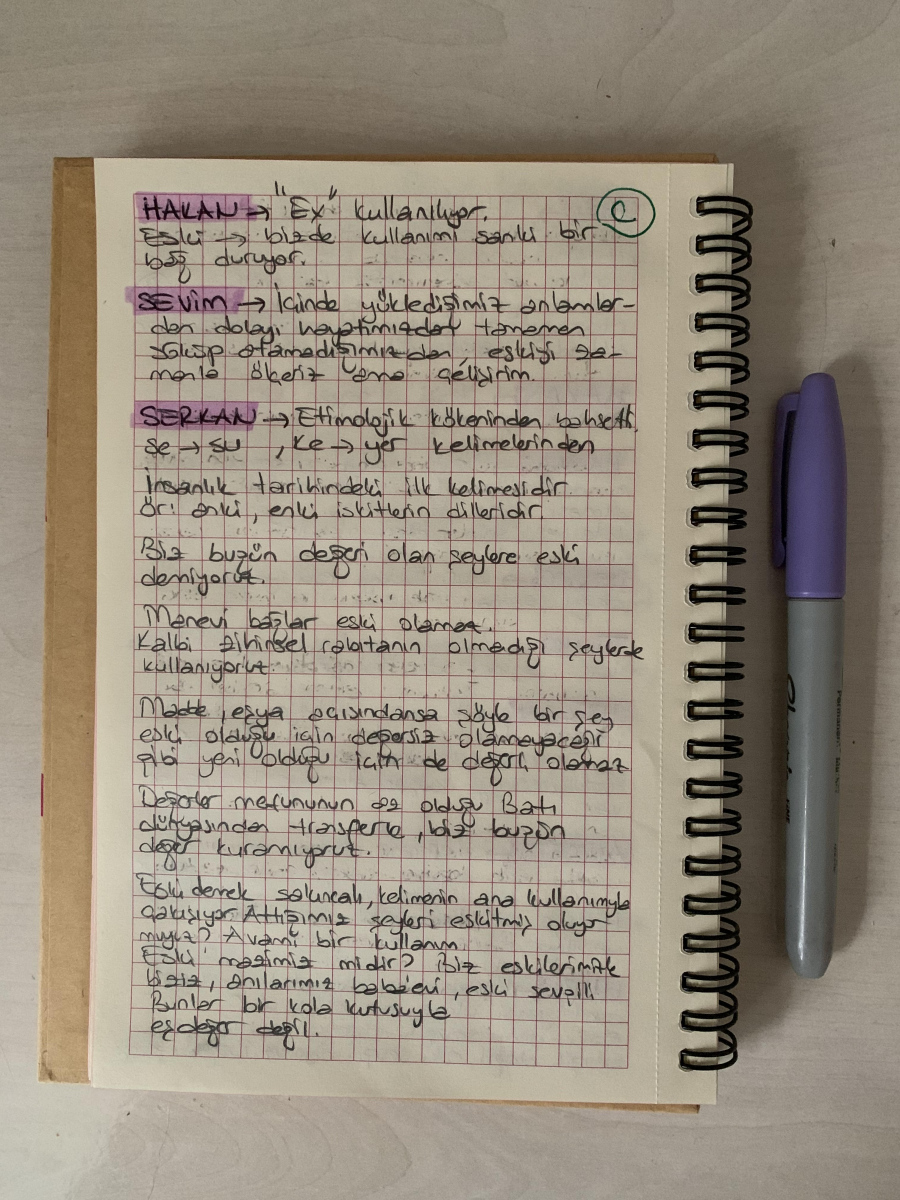 HAKAN → "Ex" kullanılıyor.
C
Eski → bizde kullanımı sanki bir
bağ duruyor.
SEVİM → İçinde yüklediğimiz anlamlar-
dan dolayı hayatımızdan tamamen
söküp atamadığımızdan, eskiyi za-
manla öteriz ama gelişirim.
SERKAN → Etimolojik kökeninden bahsetti,
se → su , ke → yer kelimelerinden
İnsanlık tarihindeki ilk kelimesidir
Ör: anki, enki iskitlerin dilleridir
Biz bugün değeri olan şeylere eski
demiyoruz.
Manevi bağlar eski olamaz.
Kalbi zihinsel rabıtanın olmadığı şeylerde
kullanıyoruz.
Madde, eşya açısındansa şöyle bir şey
eski olduğu için değersiz olamayacağı
gibi yeni olduğu için de değerli olamaz
Değerler mefununun az olduğu Batı
dünyasından transferle, biz bugün
değer kuramıyoruz.
Eski demek sakıncalı, kelimenin ana kullanımıyla
çakışıyor. Attığımız şeyleri eskitmiş oluyor
muyuz? Avami bir kullanım.
Eski mazimiz midir? Biz eskilerimizle
biziz, anılarımız babaevi, eski sevgili
Bunlar bir kola kutusuyla
eşdeğer değil.